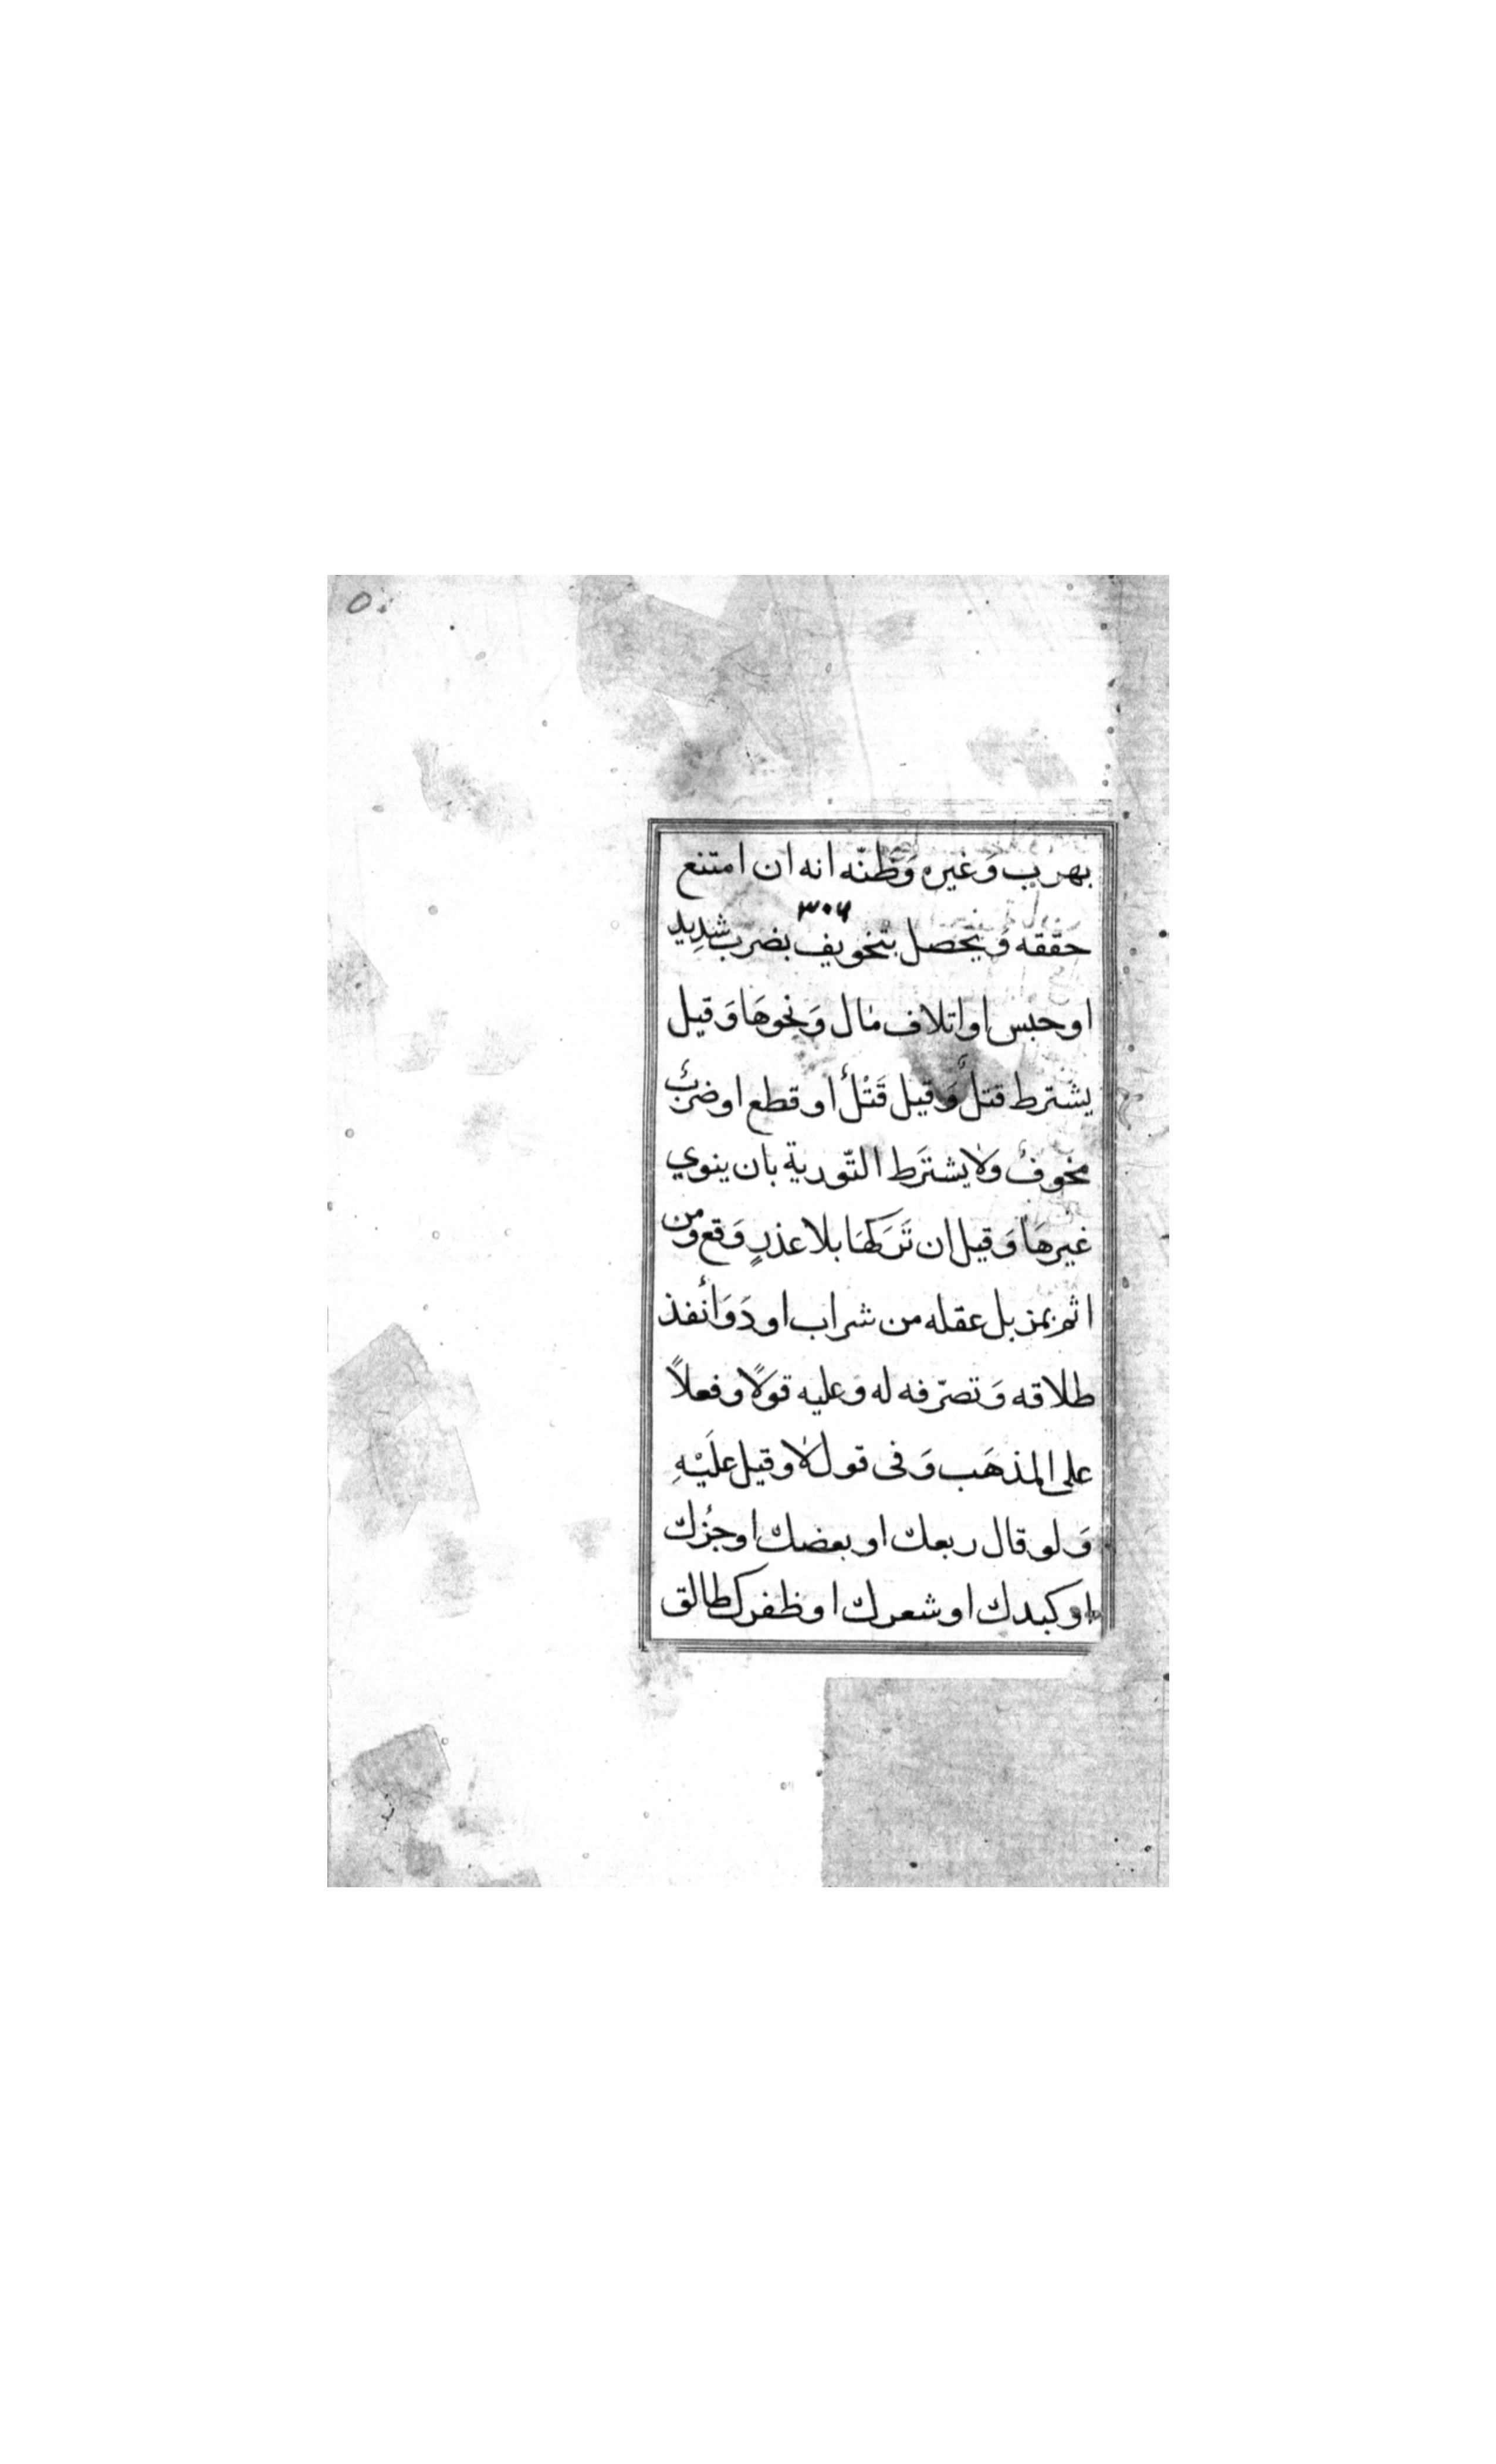 ٥٠
بهرب وَغيره وَظنّه انه ان امتنع
٣٠٦
حققه وَيحصل بتخويف بضرب شديد
اوحبس اواتلاف مال وَنحوهَا وَقيل
يشترط قتلٌ وَقيل قَتْلٌ او قطع اوضربٌ
مخوفٌ ولا يشترَط التّورية بان ينوي
غيرهَا وَقيل ان تَركهَا بلا عذرٍ وَقع ومن
اثم بمزيل عقله من شراب او دَوَأنفذ
طلاقه وَتصرّفه له وَعليه قولًا وفعلاً
على المذهَب وَفى قول لا وقيل عَلَيْهِ
وَلو قال ربعك او بعضك اوجُزك
اوكبدك اوشعرك اوظفرك طالق